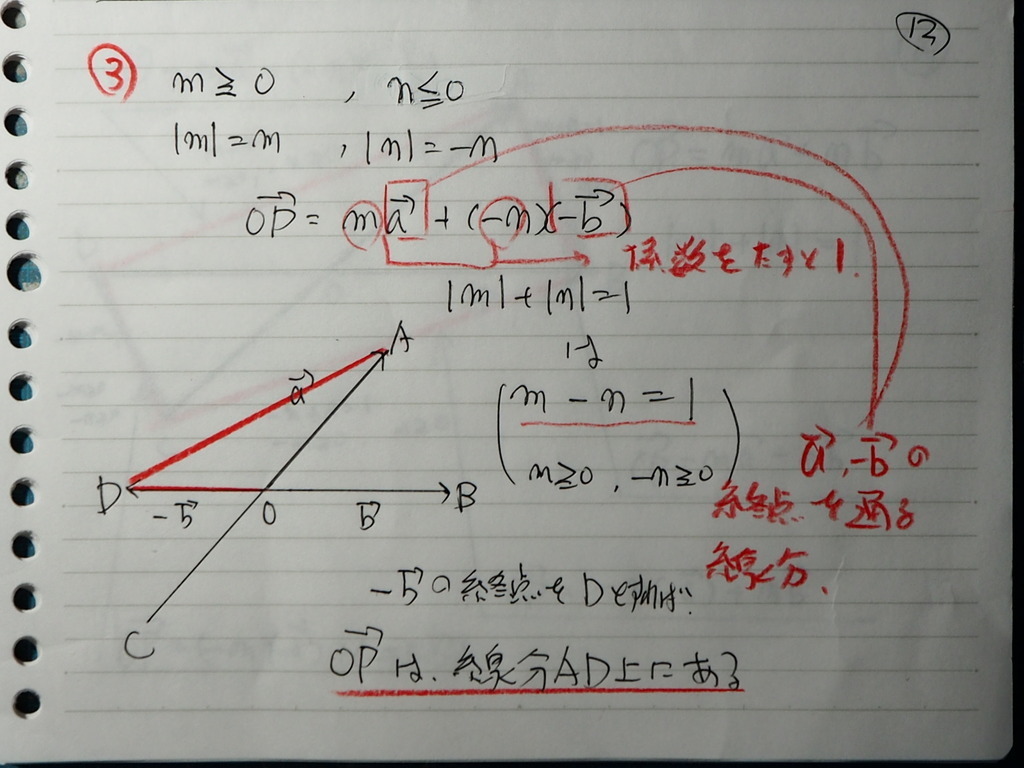 12
③ m≧0 , n≦0
|m|=m , |n|=-n
OP→ = m a→ + (-n)(-b→)
係数をたすと1.
|m|+|n|=1
は
m - n = 1
(m≧0, -n≧0)
a→, -b→の
終点を通る
線分.
A
a→
D
-b→
O
b→
B
C
-b→の終点をDとすれば、
OP→は、線分AD上にある